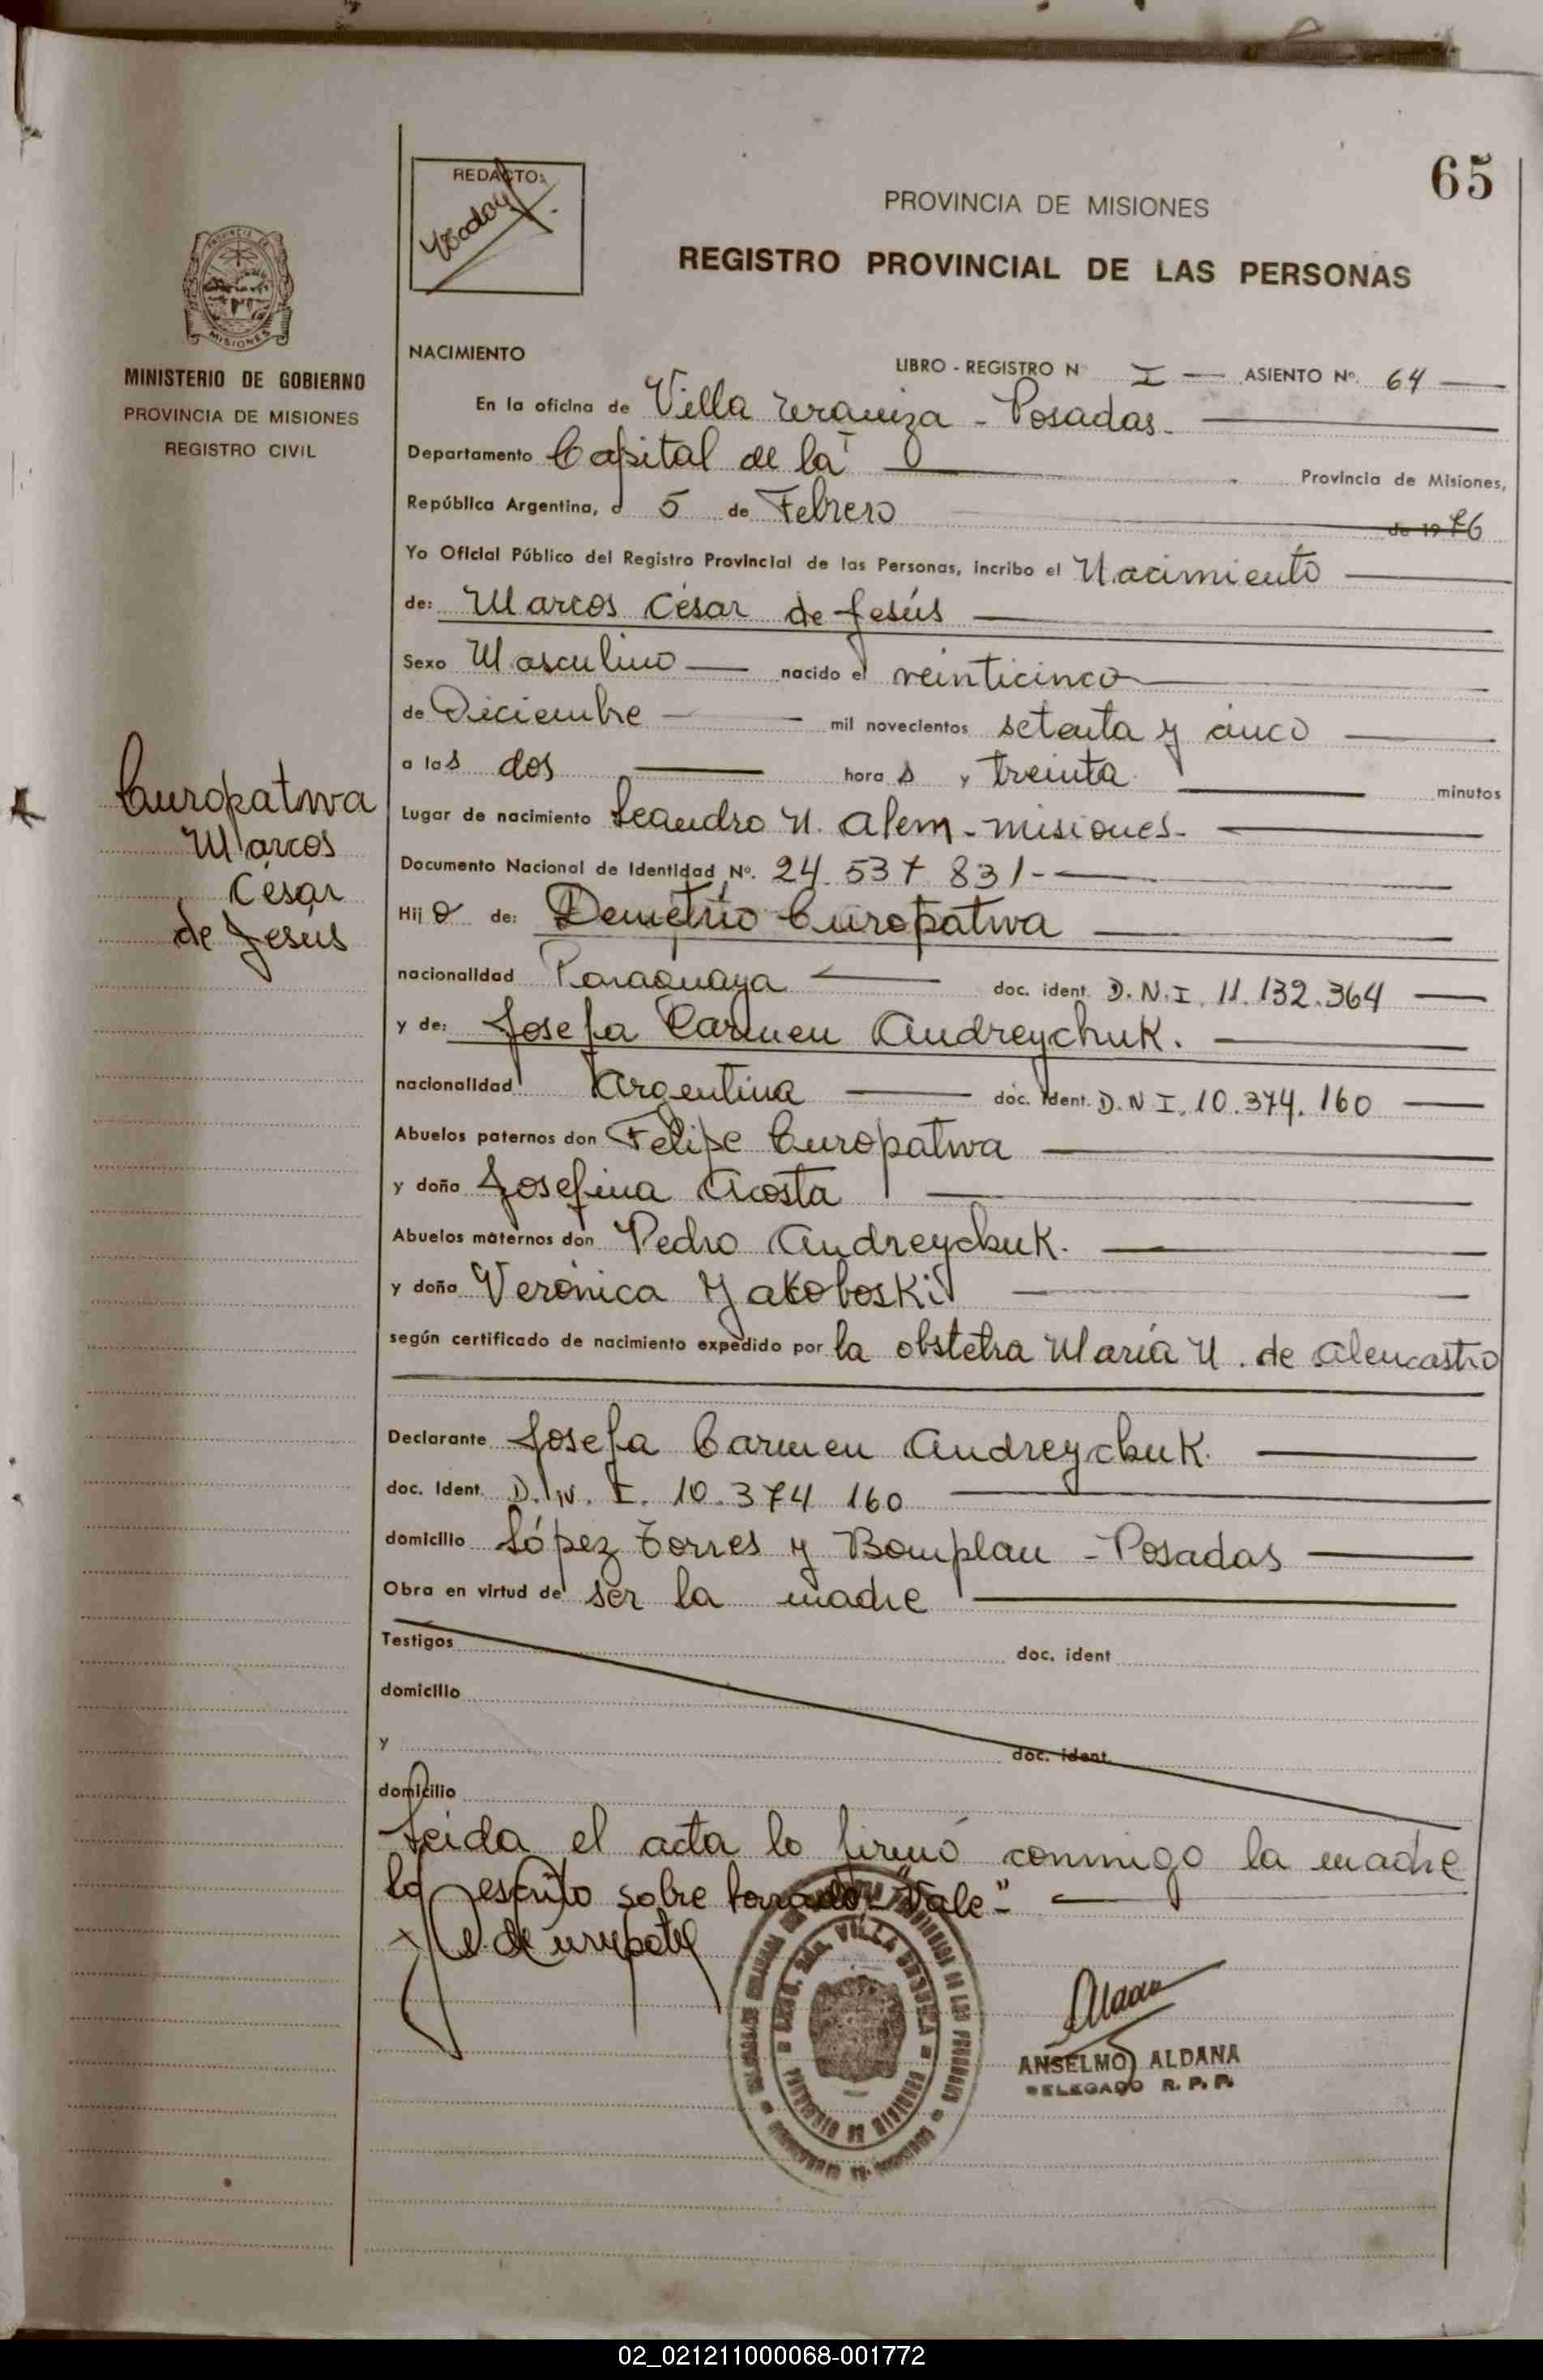 65
REDACTO:
PROVINCIA DE MISIONES
REGISTRO PROVINCIAL DE LAS PERSONAS
MISIONES
MINISTERIO DE GOBIERNO
PROVINCIA DE MISIONES
REGISTRO CIVIL
NACIMIENTO
LIBRO - REGISTRO N I — ASIENTO Nº. 64 —
En la oficina de Villa Urquiza - Posadas -
Departamento Capital de la — Provincia de Misiones,
República Argentina, a 5 de Febrero — de 1976
Yo Oficial Público del Registro Provincial de las Personas, incribo el Nacimiento —
de: Marcos César de Jesús —
Sexo Masculino — nacido el veinticinco —
de Diciembre — mil novecientos setenta y cinco —
a las dos — horas y treinta — minutos
Lugar de nacimiento Leandro N. Alem - Misiones - —
Documento Nacional de Identidad Nº. 24.537.831 - —
Hijo de: Demetrio Curopatwa —
nacionalidad Paraguaya — doc. ident. D.N.I. 11.132.364 —
y de: Josefa Carmen Andreychuk. —
nacionalidad Argentina — doc. ident. D.N.I. 10.374.160 —
Abuelos paternos don Felipe Curopatwa —
y doña Josefina Acosta —
Abuelos maternos don Pedro Andreychuk. —
y doña Verónica Yakoboski —
según certificado de nacimiento expedido por la obstetra María N. de Alencastro
Declarante Josefa Carmen Andreychuk. —
doc. Ident. D.N.I. 10.374.160 —
domicilio López Torres y Bomplan - Posadas —
Obra en virtud de ser la madre —
Testigos doc. ident
domicilio
y doc. ident.
domicilio
Leida el acta lo firmó conmigo la madre
lo escrito sobre borrado "Vale" - —
Curopatwa
Marcos
César
de Jesús
VILLA URQUIZA
ANSELMO ALDANA
DELEGADO R. P. P.
02_021211000068-001772